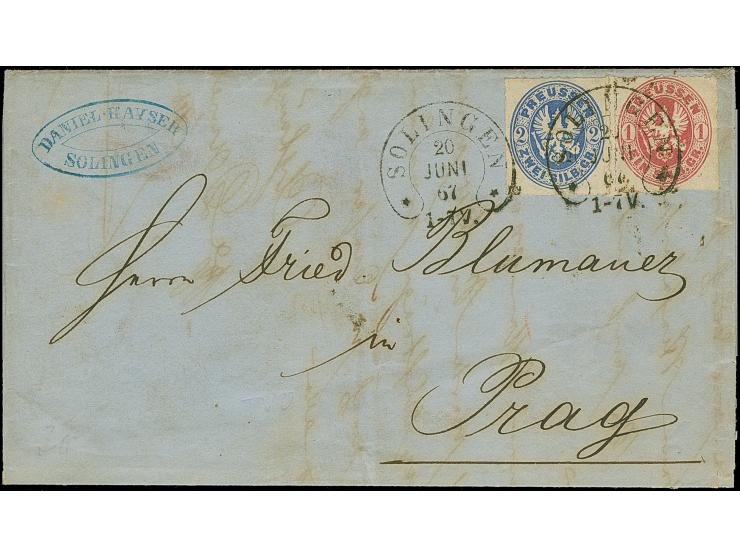 DANIEL KAYSER
SOLINGEN
SOLINGEN
20
JUNI
67
1-7V.
PREUSSEN
2
2
ZWEI SILB.GR.
PREUSSEN
1
1
SOLINGEN
20
JUNI
67
1-7V.
Herrn Fried. Blumauer
in
Prag